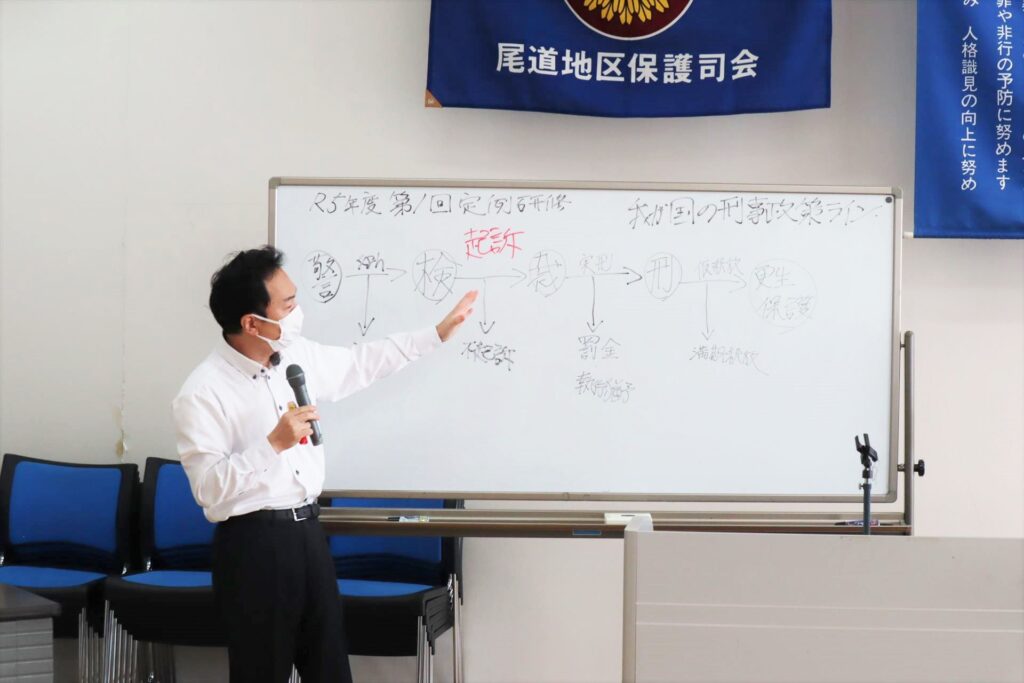 尾道地区保護司会
罪や非行の予防に努めます
み 人格識見の向上に努め
R5年度 第1回 定例研修
我が国の刑事政策ライン
起訴
警
検
裁
実刑
刑
仮釈放
更生
保護
不起訴
罰金
執行猶予
満期釈放